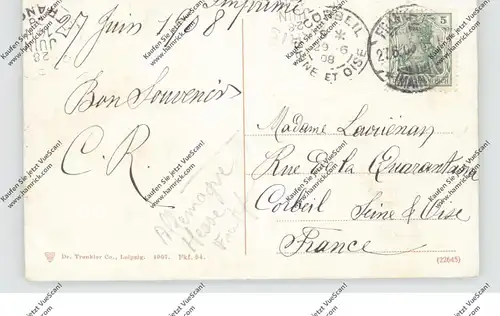 Imprimé
27 Juin 1908
Bon Souvenir
C. R.
CORBEIL
29-6
08
SEINE ET OISE
5
Madame
Rue De la Quarantaine
Corbeil Seine & Oise
France
Allemagne
Hesse
Dr. Trenkler Co., Leipzig. 1907. Fkf. 94.
(22645)
Kaufen Sie jetzt VueScan!
www.hamrick.com